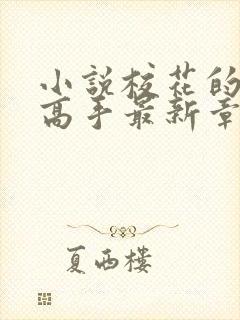 小說校花的
高手最新章
夏西樓